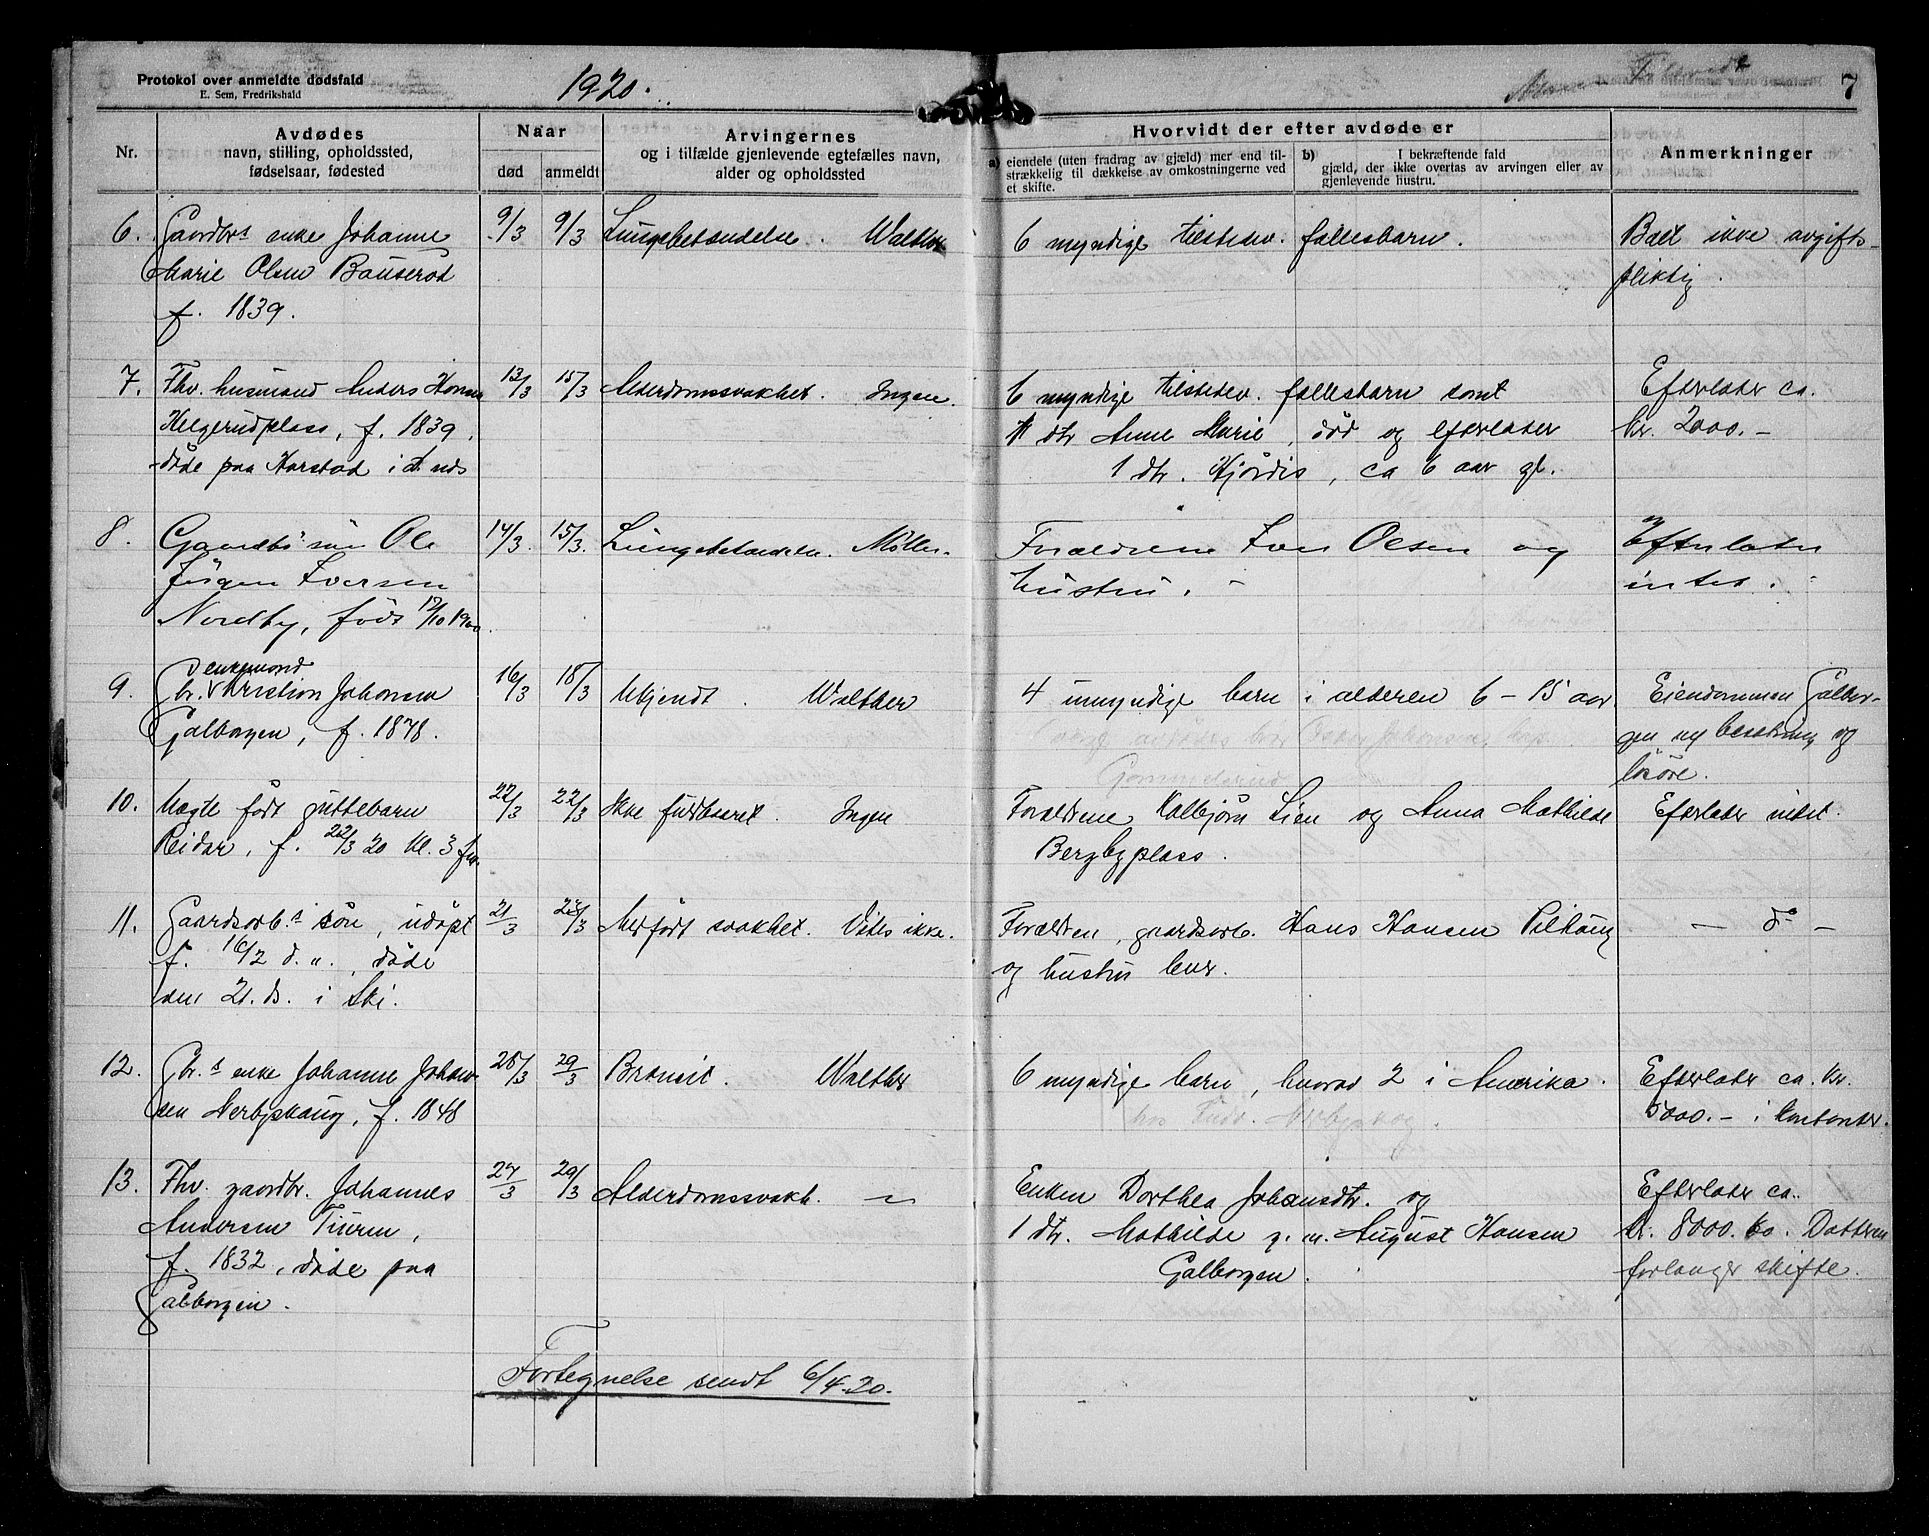 Protokol over anmeldte dødsfald
E. Sem, Fredrikshald
1920.
7
Nr.
Avdødes
navn, stilling, opholdssted,
fødselsaar, fødested
Naar
død
anmeldt
Arvingernes
og i tilfælde gjenlevende egtefælles navn,
alder og opholdssted
Hvorvidt der efter avdøde er
a) eiendele (uten fradrag av gjæld) mer end til-
strækkelig til dækkelse av omkostningerne ved
et skifte.
b) I bekræftende fald
gjæld, der ikke overtas av arvingen eller av
gjenlevende hustru.
Anmerkninger
6. Gaardbrs enke Johanne 9/3 9/3 Lungebetændelse. Walther 6 myndige tilstedev. fællesbarn. Boet ikke avgifts-
Marie Olsen Bauserød pliktig.
f. 1839.
7. Fhv. husmand Anders Hansen 13/3 15/3 Alderdomssvakhet. Ingen. 6 myndige tilstedev. fællesbarn samt Efterlater ca.
Helgerudplass, f. 1839. 1 dtr Anne Marie, død og efterlater kr. 2000.-
døde paa Harstad i d. 1 dtr. Hjørdis, ca 6 aar gl.
8. Gaardbr søn Ole 14/3. 15/3. Lungebetændelse. Møller. Forældrene Iver Olsen og Efterlater
Jørgen Iversen hustru. intet.
Nordby, født 17/10 1900.
enkemand
9. Gbr. Kristian Johansen 16/3 18/3 Ukjendt. Walther 4 umyndige barn i alderen 6 - 15 aar Eiendommen Galbor-
Galborgen, f. 1878. gen m/ besetning og
løsøre.
10. Uegte født guttebarn 22/3 22/3 Ikke fuldbaaret. Ingen Forældrene Kolbjørn Lien og Anna Mathilde Efterlater intet.
Reidar, f. 22/3 20 kl. 3 fm. Bergbyplass.
11. Gaardsarb.s søn, udøpt 21/3 23/3 Medfødt svakhet. Vites ikke. Forældren, gaardsarb. Hans Hansen Pilhaug — do —
f. 16/2 d. a., døde og hustru her.
den 21. ds. i Ski.
12. Gbr.s enke Johanne Johan- 28/3 29/3 Bronsit. Walther 6 myndige barn, hvorav 2 i Amerika. Efterlater ca. kr.
sen Nerbyskaug, f. 1848 5000.- i kontanter.
13. Fhv. gaardbr. Johannes 27/3 29/3 Alderdomssvakh. — Enken Dorthea Johansdtr. og Efterlater ca.
Andersen Turen, 1 dtr. Mathilde g. m. August Hansen kr. 8000.00. Datteren
f. 1832, døde paa Galborgen. forlanger skifte.
Galborgen.
Fortegnelse sendt 6/4.20.